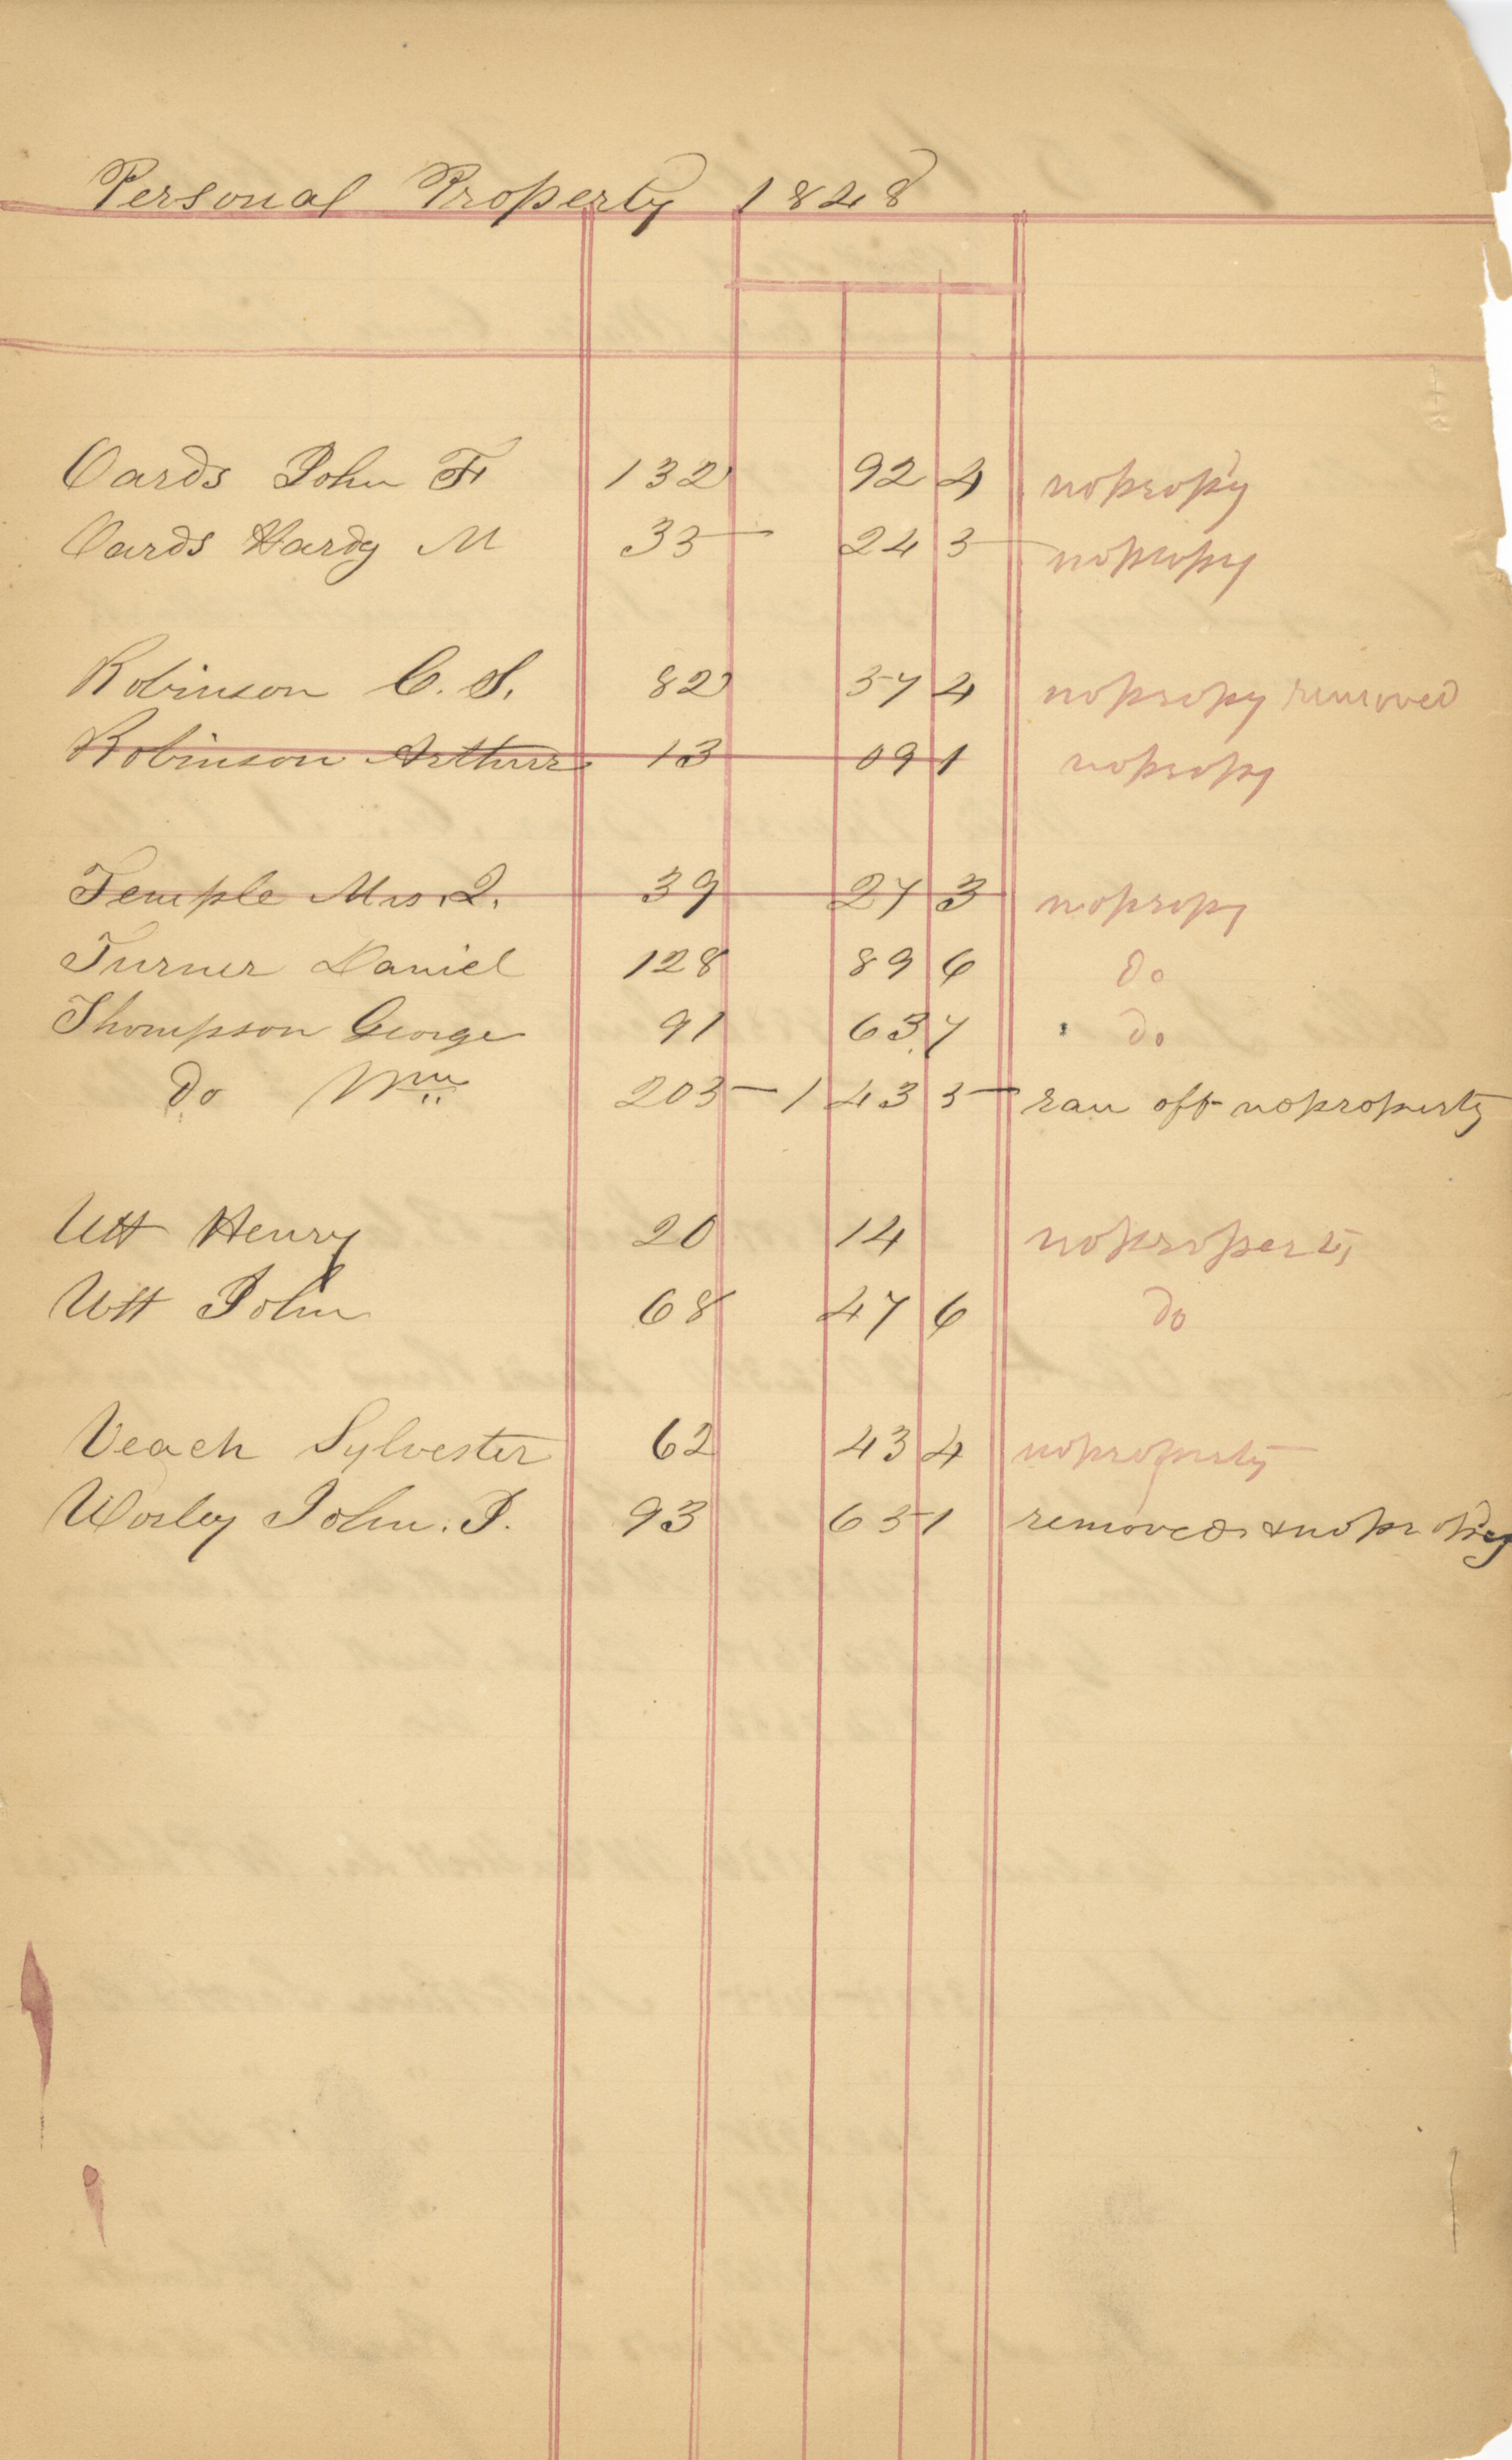 Personal Property 1848
Oards John F 132 92 4 nopropy
Oards Hardy M 35 24 5 nopropy
Robinson C. S. 82 57 4 nopropy removed
Robinson Arthur 13 09 1 nopropy
Temple Mrs. Q. 39 27 3 nopropy
Turner Daniel 128 89 6 do
Thompson George 91 63 7 do
do Wm 205 1 43 5 ran off noproperty
Utt Henry 20 14 noproperty
Utt John 68 47 6 do
Veach Sylvester 62 43 4 noproperty
Worley John. P. 93 65 1 removed & nopropy